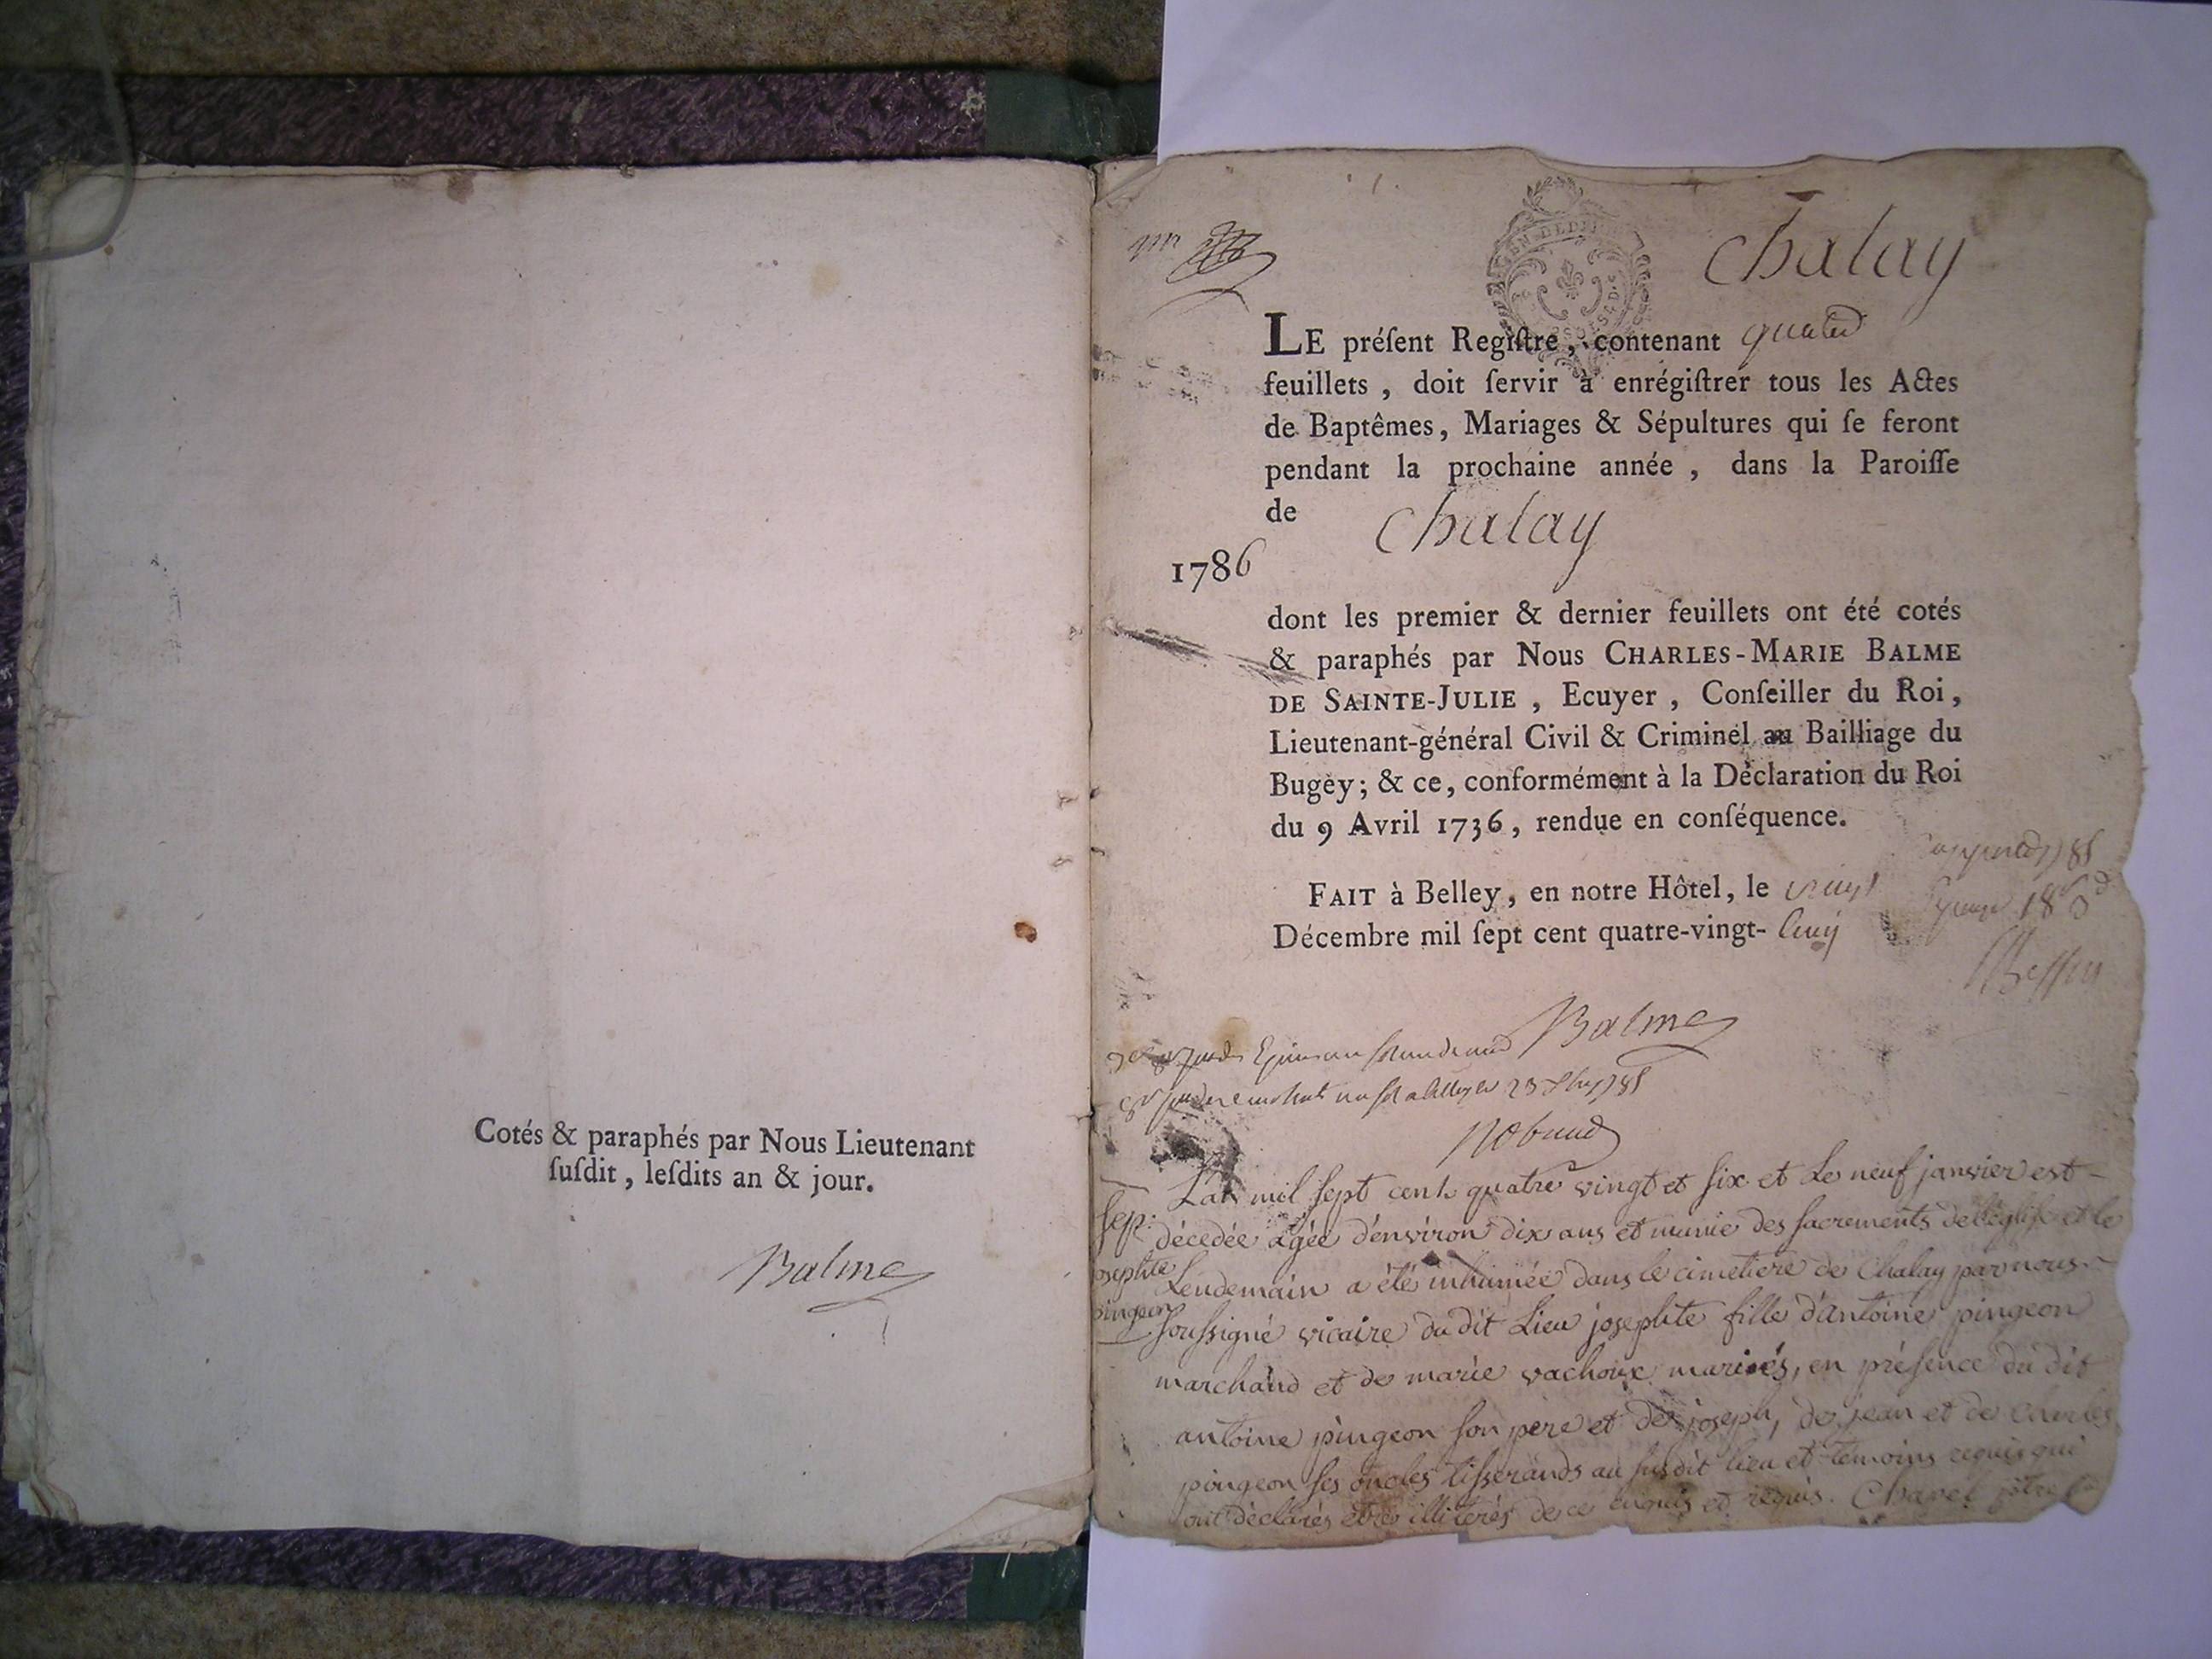 Cotés & paraphés par Nous Lieutenant
ſuſdit, leſdits an & jour.
Balme
Chalay
LE préſent Regiſtre, contenant
feuillets, doit ſervir à enrégiſtrer tous les Actes
de Baptêmes, Mariages & Sépultures qui ſe feront
pendant la prochaine année, dans la Paroiſſe
de Chalay
1786
dont les premier & dernier feuillets ont été cotés
& paraphés par Nous CHARLES-MARIE BALME
DE SAINTE-JULIE, Ecuyer, Conſeiller du Roi,
Lieutenant-général Civil & Criminel au Bailliage du
Bugey; & ce, conformément à la Déclaration du Roi
du 9 Avril 1736, rendue en conſéquence.
FAIT à Belley, en notre Hôtel, le vingt
Décembre mil ſept cent quatre-vingt- cinq
Balme
L'an mil sept cent quatre vingt et six et Le neuf janvier est
sep: décedée agée d'environ dix ans et munie des sacrements de l'église et le
josephte Lendemain a été inhumée dans le cimetiere de Chalay par nous
pingeon soussigné vicaire du dit Lieu josephte fille d'antoine pingeon
marchand et de marie vachoux mariés, en présence du dit
antoine pingeon son pere et de joseph, de jean et de charles
pingeon ses oncles tisserands au susdit lieu et temoins requis qui
ont déclarés etre illiterés de ce enquis et requis. Chavel ptre